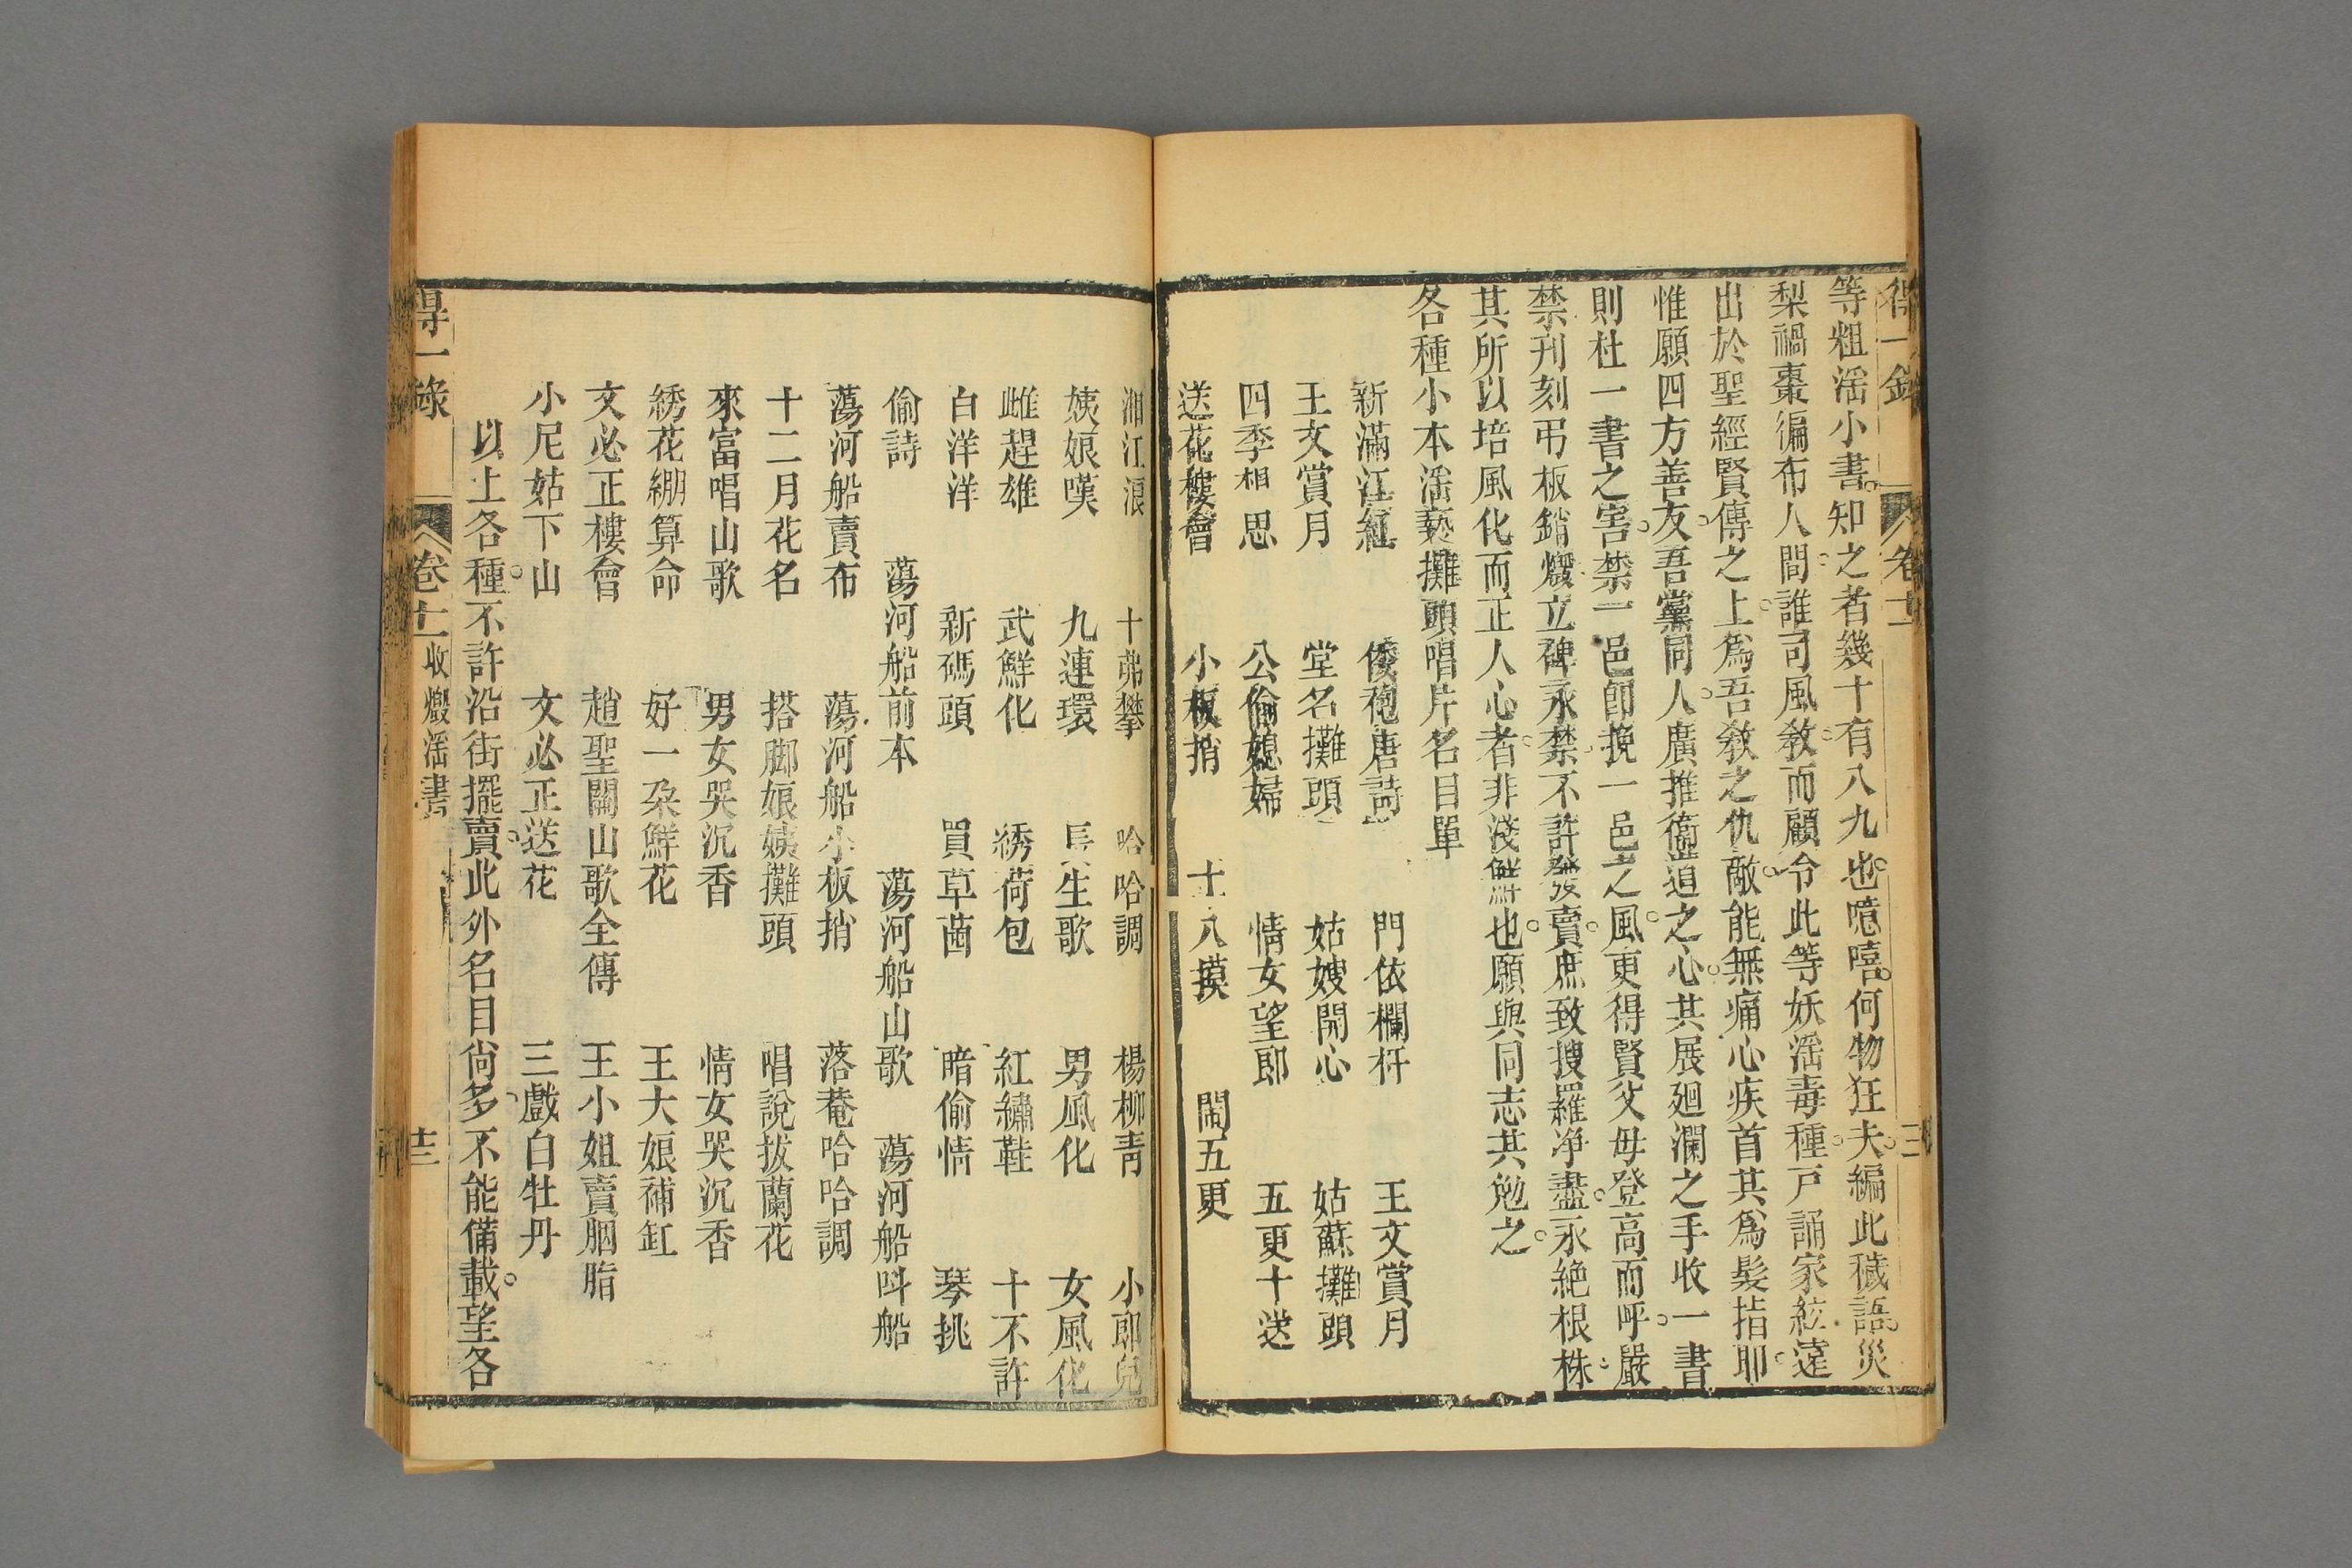 等粗滛小書知之者幾十有八九也噫嘻何物狂夫編此穢語災
梨禍棗徧布人間誰司風教而顧令此等妖滛毒種戸誦家絃遠
出於聖經賢傳之上爲吾教之仇敵能無痛心疾首其爲髮指耶
惟願四方善友吾黨同人廣推衞道之心其展廻瀾之手收一書
則杜一書之害禁一邑卽挽一邑之風更得賢父毋登高而呼嚴
禁刋刻弔板銷燬立碑永禁不許發賣庶致搜羅净盡永絕根株
其所以培風化而正人心者非淺鮮也願與同志共勉之
各種小本滛褻攤頭唱片名目單
新滿江紅 倭袍唐詩 門依欄杆 王文賞月
王文賞月 堂名攤頭 姑嫂開心 姑蘇攤頭
四季相思 公偷媳婦 情女望郎 五更十送
送花樓會 小板捎 十八摸 鬧五更
湘江浪 十弗攀 哈哈調 楊柳青 小郎兒
姨娘嘆 九連環 長生歌 男風化 女風化
雌趕雄 武鮮化 綉荷包 紅繡鞋 十不許
白洋洋 新碼頭 買草蓾 暗偷情 琴挑
偷詩 蕩河船前本 蕩河船山歌 蕩河船呌船
蕩河船賣布 蕩河船小板捎 落菴哈哈調
十二月花名 搭脚娘姨攤頭 唱說拔蘭花
來富唱山歌 男女哭沉香 情女哭沉香
綉花綳算命 好一朶鮮花 王大娘補缸
文必正樓會 趙聖關山歌全傳 王小姐賣胭脂
小尼姑下山 文必正送花 三戲白牡丹
以上各種不許沿街擺賣此外名目尙多不能備載望各
得一錄 卷十一 收燬滛書 十三